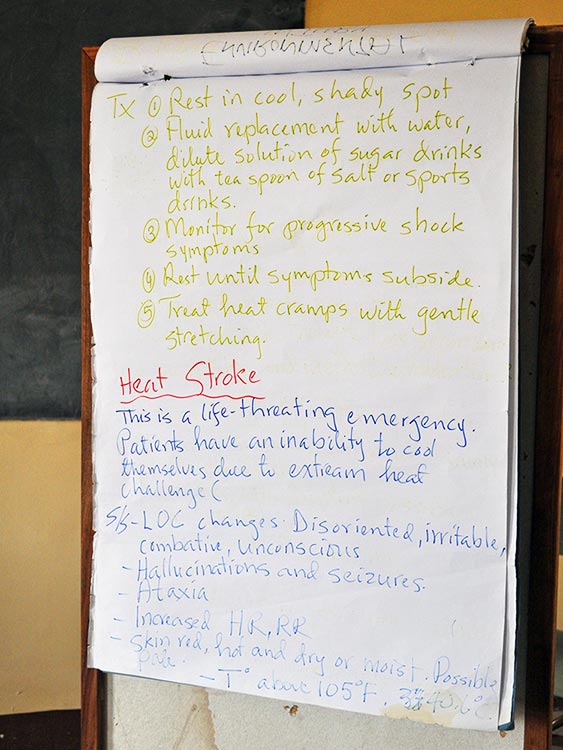 ENVIRONMENTAL
Tx ① Rest in cool, shady spot
② Fluid replacement with water,
dilute solution of sugar drinks
with tea spoon of salt or sports
drinks.
③ Monitor for progressive shock
symptoms
④ Rest until symptoms subside.
⑤ Treat heat cramps with gentle
stretching.
Heat Stroke
This is a life-threating emergency.
Patients have an inability to cool
themselves due to extream heat
challenge (
S/S - LOC changes. Disoriented, irritable,
combative, unconscious
- Hallucinations and seizures.
- Ataxia
- Increased HR, RR
- Skin red, hot and dry or moist. Possible
pale.
- T° above 105°F.